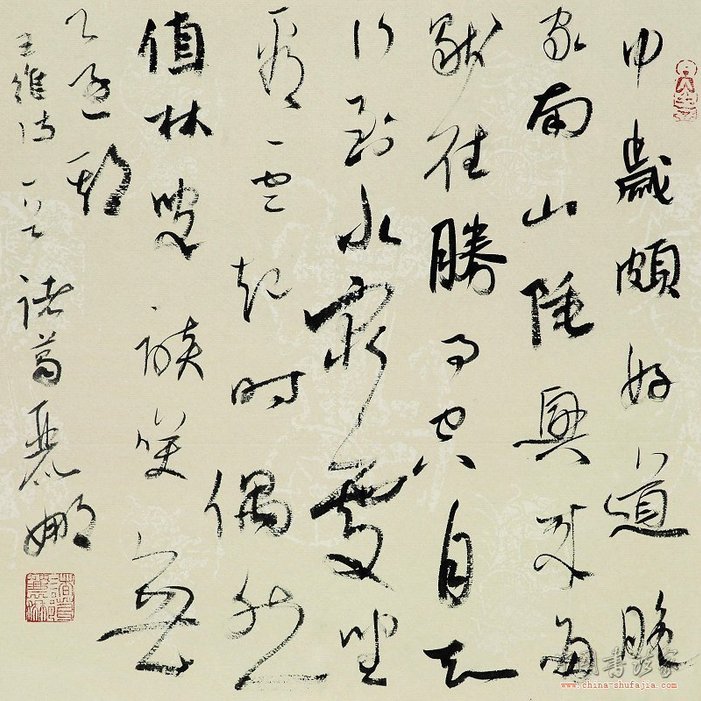 中歲頗好道晚
家南山陲興來每
獨往勝事空自知
行到水窮處坐
看雲起時偶然
值林叟談笑無
還期
王維詩一首 諸葛麗娜
中国书法家
www.china-shufajia.com